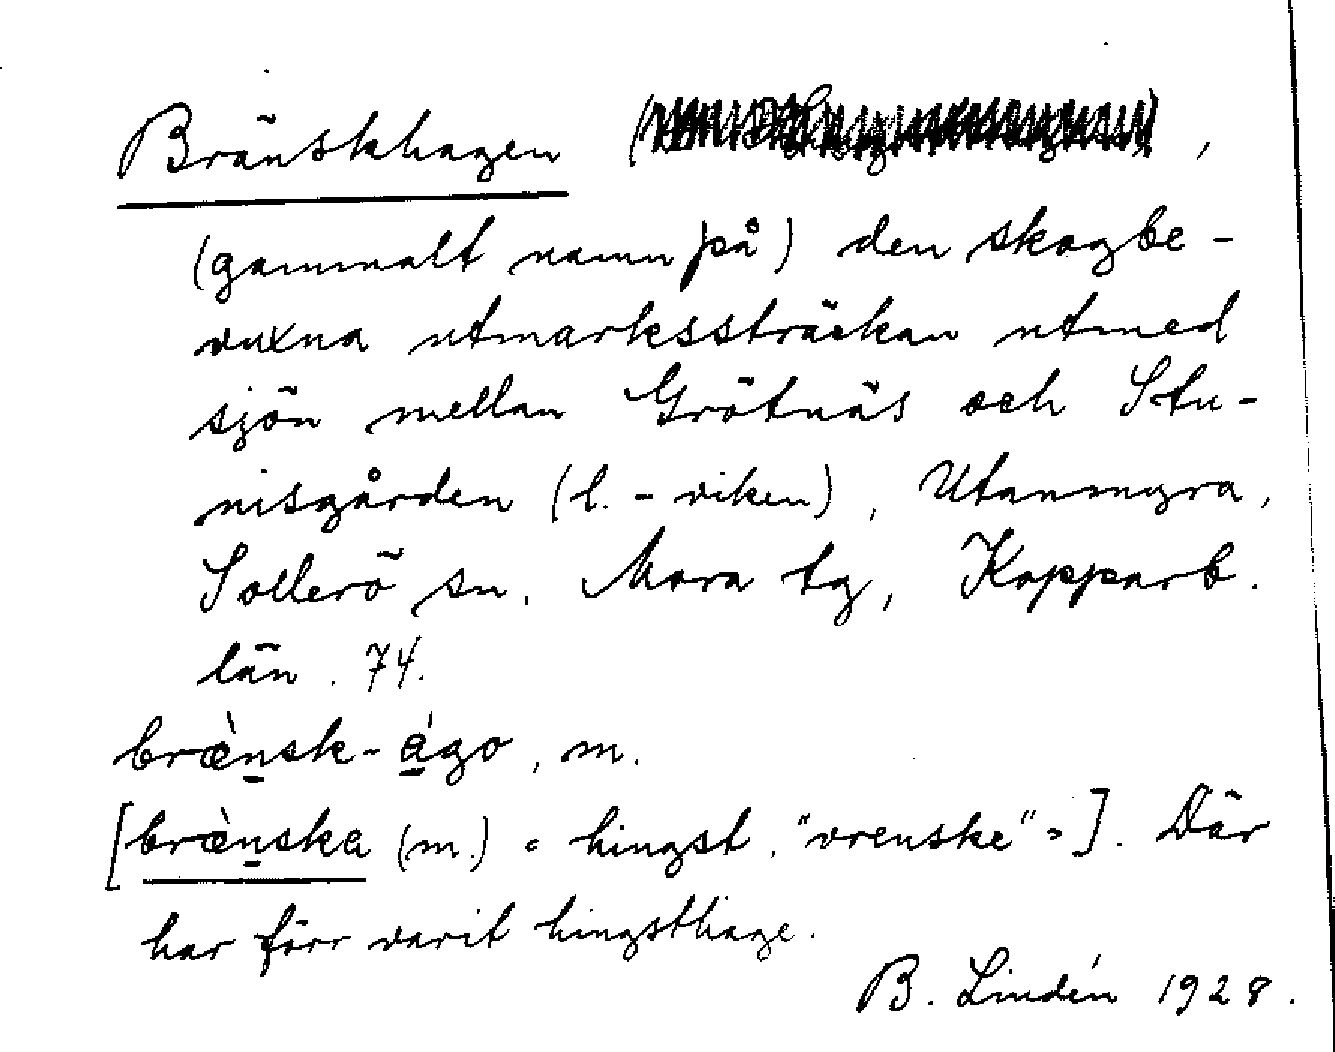 Bränskhagen ,
(gammalt namn på) den skogbe-
vuxna utmarkssträckan utmed
sjön mellan Grötnäs och Stu-
nisgården (l. -viken), Utanmyra,
Sollerö sn. Mora tg, Kopparb.
län. 74.
bræ̀nsk-ágo, m.
[bræ̀nska (m.) = hingst, "vrenske" =]. Där
har förr varit hingsthage.
B. Lindén 1928.